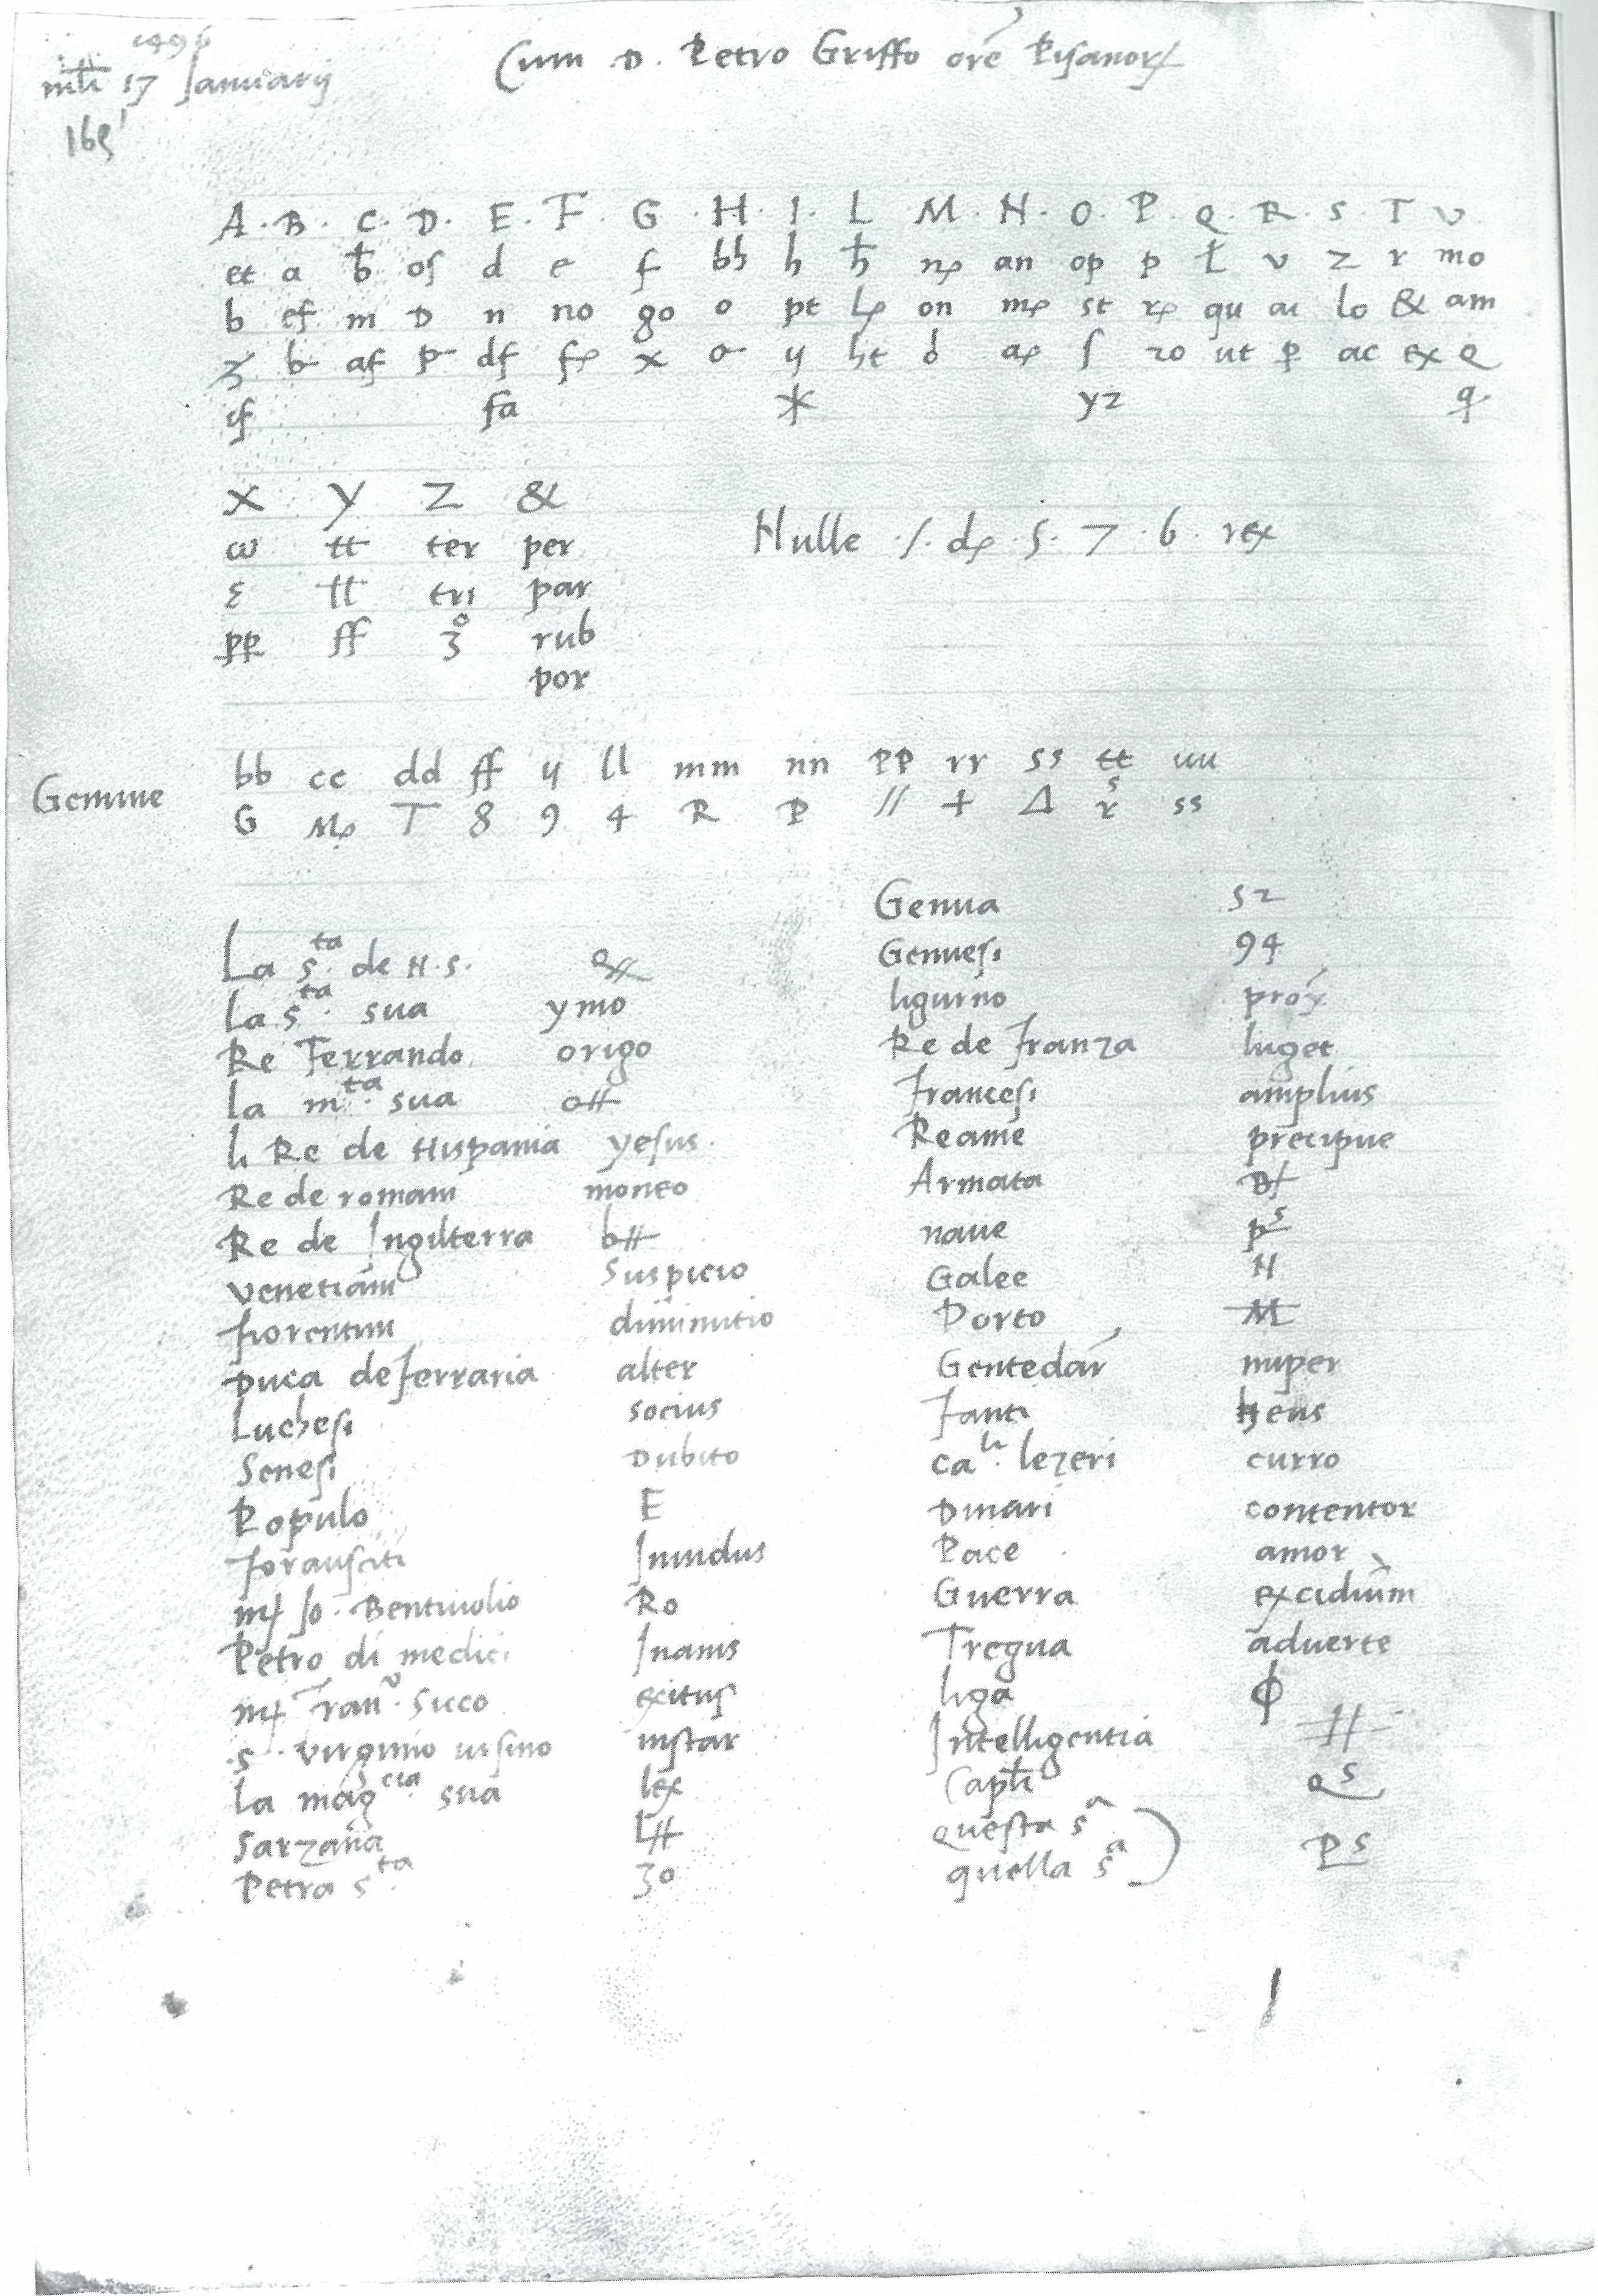 1496
17 Januarij
Cum D. Petro Griffo ore Pisanor
A · B · C · D · E · F · G · H · I · L · M · N · O · P · Q · R · S · T V
et a ƀ os d e f bb h ħ an op p ł v z r mo
b ef m D n no go o pt on st qu au lo & am
b af df x y ht af ſ ro ut ꝑ ac ex Q
if fa yz q
x y z &
ω tt ter per
ε tt tri par
pp ff 3° rub
por
Nulle · / · · 5 · 7 · 6 · rex
Gemine
bb cc dd ff y ll mm nn pp rr ss tt uu
G T 8 9 4 R P // + Δ ss
La s.ta de N. S.
la s.ta sua ymo
Re Ferrando origo
la m.ta sua
li Re de Hispania yesus
Re de romani moneo
Re de Ingilterra
venetiani Suspicio
fiorentini diminutio
Duca de ferraria alter
Luchesi socius
Senesi Dubito
Populo E
forausciti Inuidus
Io. Bentiuolio Ro
Petro di medici Inanis
Fran.o Secco exitus
.S. virginio ursino instar
la mag.cia sua lex
Sarzana
Petra s.ta 30
Genua 52
Genuesi 94
ligurno
Re de Franza luget
Francesi amplius
Reame precipue
Armata
naue ps
Galee N
Porto M
Gente dar nuper
Fanti heus
ca.li lezeri curro
Dinari contentor
Pace amor
Guerra excidium
Tregua aduerte
liga ϕ
Intelligentia
Capti Qs
questa s.a
quella s.a Ps